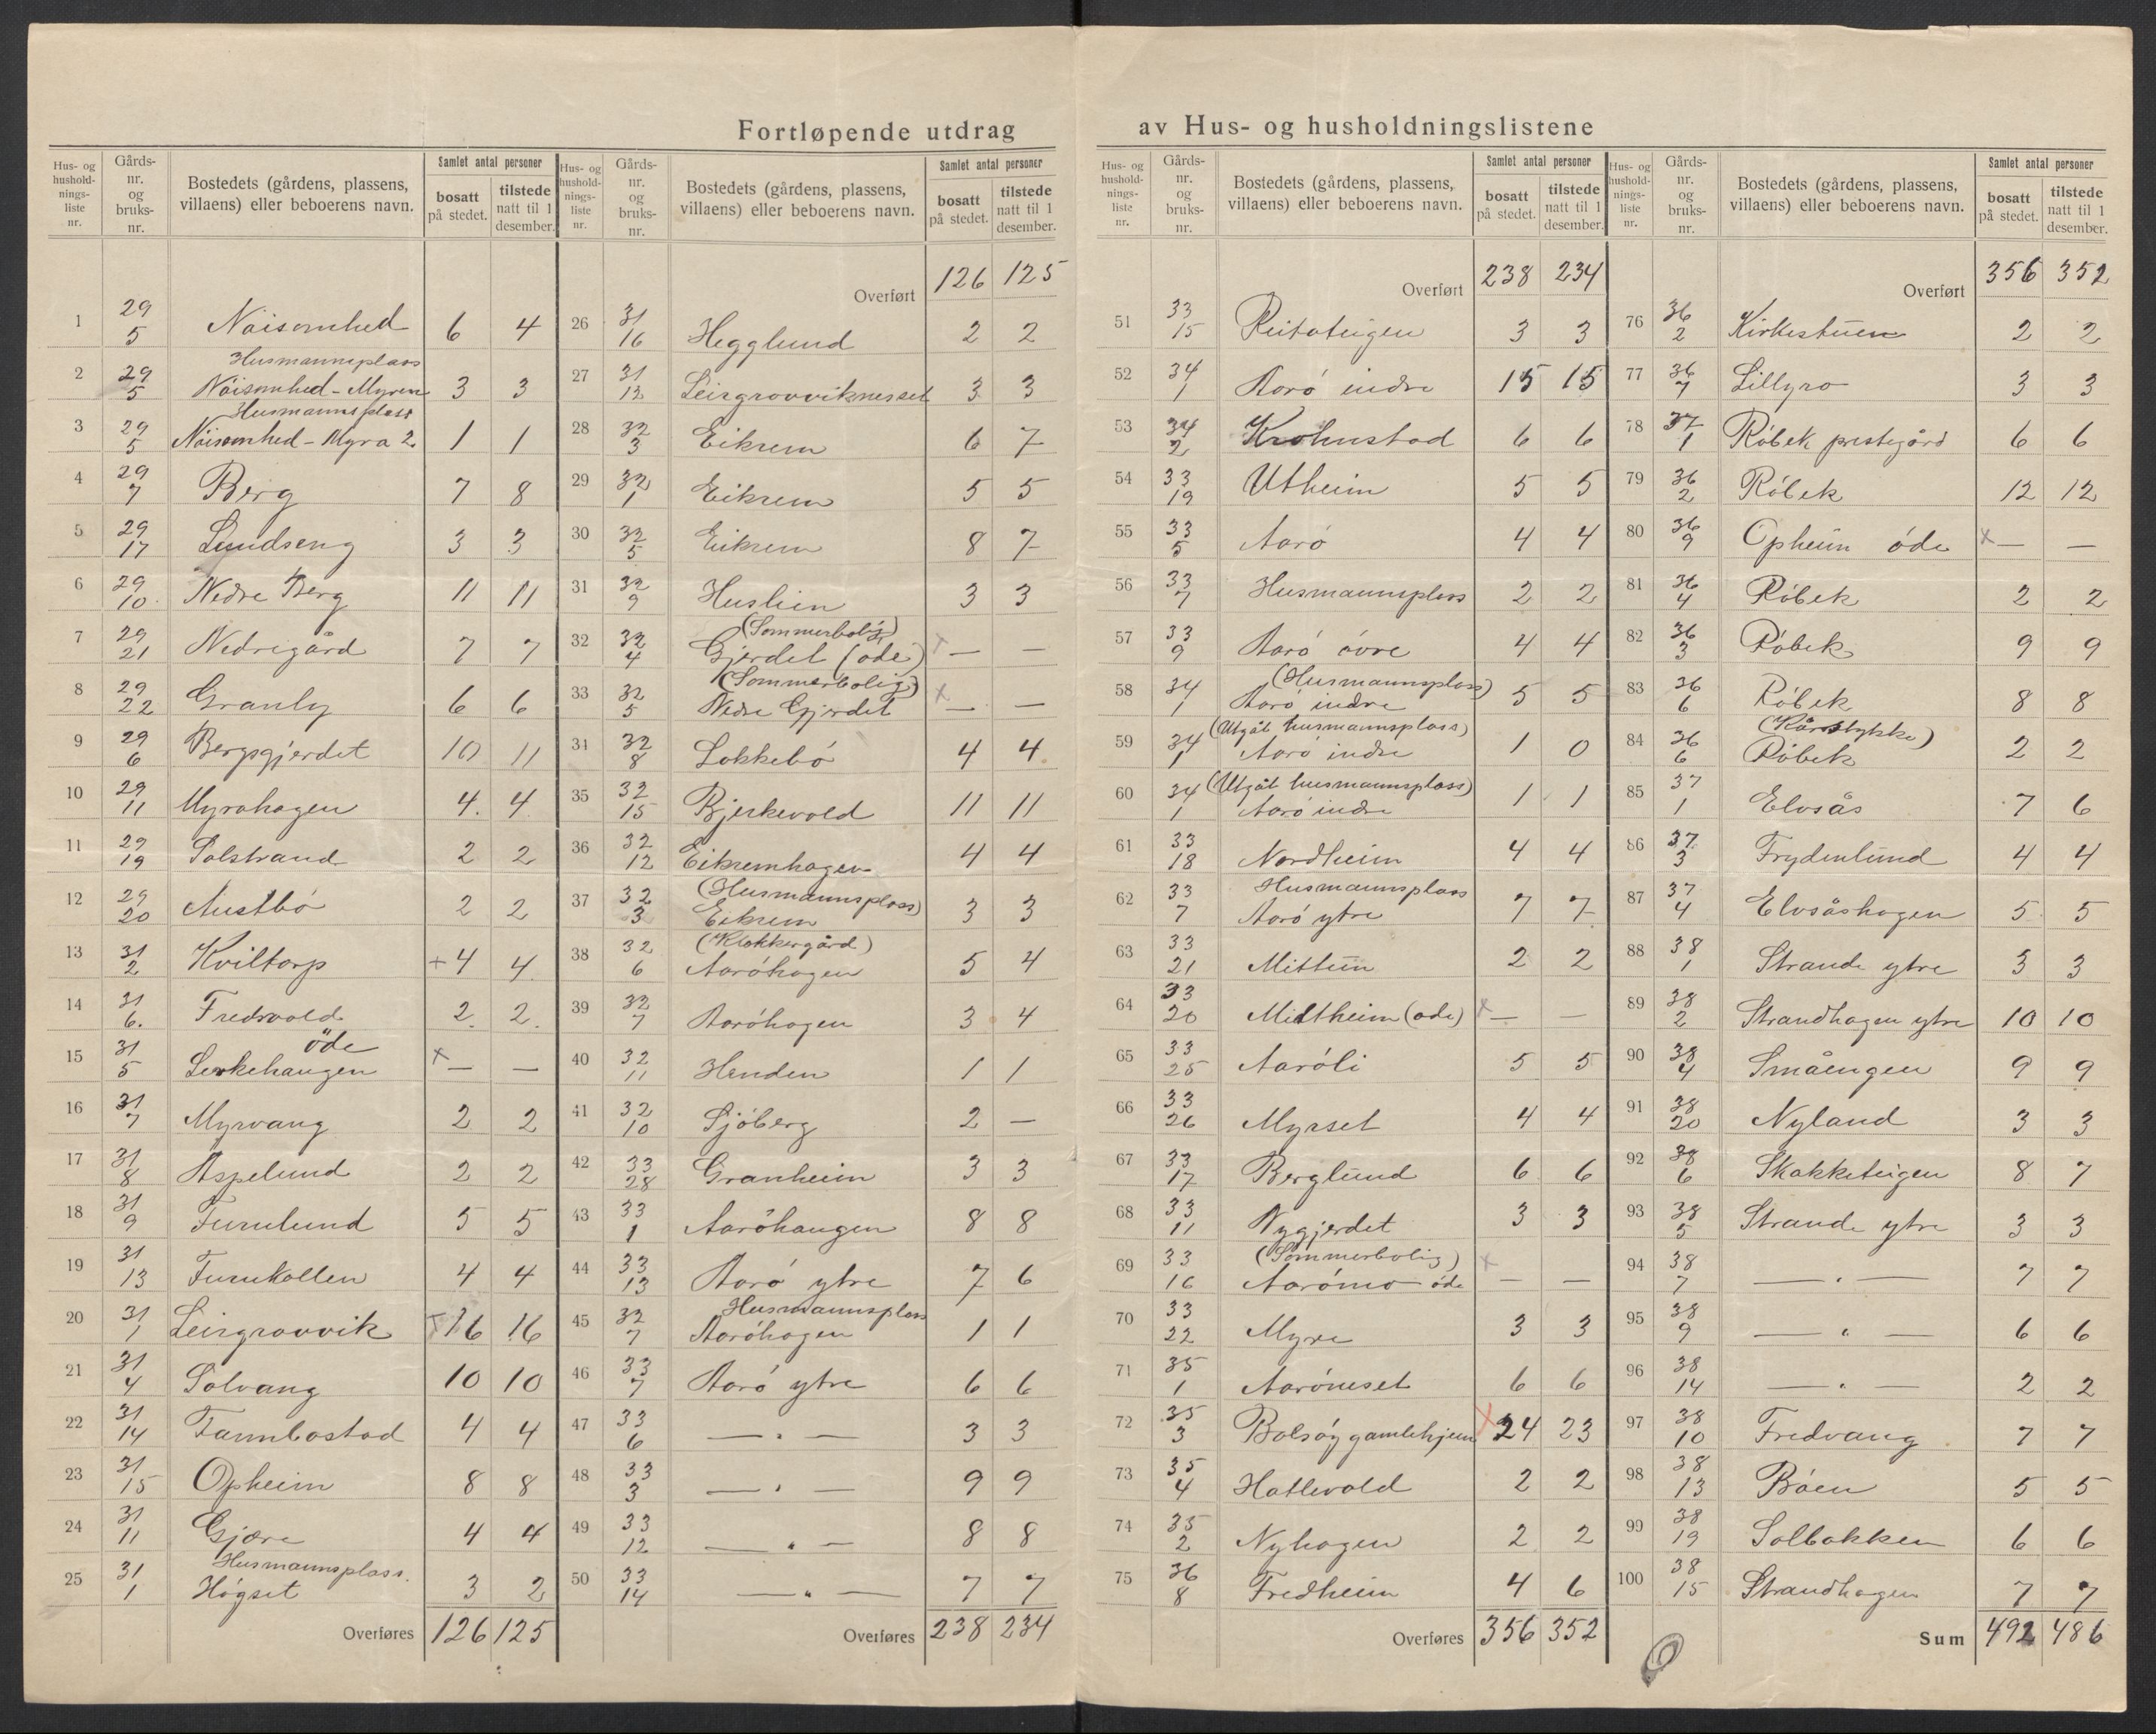 Fortløpende utdrag av Hus- og husholdningslistene
Hus- og husholdnings-liste nr. | Gårds-nr. og bruks-nr. | Bostedets (gårdens, plassens, villaens) eller beboerens navn. | Samlet antal personer | bosatt på stedet. | tilstede natt til 1 desember.
1 29/5 Nöisomhed 6 4
2 29/5 Husmannsplass Nöisomhed - Myren 3 3
3 29/5 Husmannsplass Nöisomhed - Myra 2. 1 1
4 29/7 Berg 7 8
5 29/17 Lundseng 3 3
6 29/10 Nedre Berg 11 11
7 29/21 Nedregård 7 7
8 29/22 Granly 6 6
9 29/6 Bergsgjerdet 10 11
10 29/11 Myrahagen 4. 4
11 29/19 Solstrand 2 2
12 29/20 Austbö 2 2
13 31/2 Kviltorp +4 4
14 31/6. Fredsvold 2. 2.
15 31/5 öde Lerkehaugen x — —
16 31/7 Myrvang 2 2
17 31/8 Aspelund 2 2
18 31/9 Furulund 5 5
19 31/13 Furukollen 4 4
20 31/1 Leirgrovvik +16 16
21 31/4 Solvang 10 10
22 31/14 Tannbostad 4 4
23 31/15 Opheim 8 8
24 31/11 Gjære 4 4
25 31/1 Husmannsplass. Högset 3 2
Overføres 126 125
Hus- og husholdnings-liste nr. | Gårds-nr. og bruks-nr. | Bostedets (gårdens, plassens, villaens) eller beboerens navn. | Samlet antal personer | bosatt på stedet. | tilstede natt til 1 desember.
Overført 126 125
26 31/16 Hegglund 2 2
27 31/12 Leirgrovviknesset 3 3
28 32/3 Eikrem 6 7
29 32/1 Eikrem 5 5
30 32/5 Eikrem 8 7
31 32/9 Huslien 3 3
32 32/4 (Sommerbolig) Gjerdet (öde) + — —
33 32/5 (Sommerbolig) Nedre Gjerdet x — —
34 32/8 Lokkebö 4 4
35 32/15 Bjerkevold 11 11
36 32/12 Eikremhagen 4 4
37 32/3 (Husmannsplass) Eikrem 3 3
38 32/6 (Klokkergård) Aaröhagen 5 4
39 32/7 Aaröhagen 3 4
40 32/11 Henden 1 1
41 32/10 Sjöberg 2 —
42 33/28 Granheim 3 3
43 33/1 Aaröhaugen 8 8
44 33/13 Aarö ytre 7 6
45 32/7 Husmannsplass Aaröhagen 1 1
46 33/7 Aarö ytre 6 6
47 33/6 — " — 3 3
48 33/3 — " — 9 9
49 33/12 — " — 8 8
50 33/14 — " — 7 7
Overføres 238 234
Hus- og husholdnings-liste nr. | Gårds-nr. og bruks-nr. | Bostedets (gårdens, plassens, villaens) eller beboerens navn. | Samlet antal personer | bosatt på stedet. | tilstede natt til 1 desember.
Overført 238 234
51 33/15 Reitateigen 3 3
52 34/1 Aarö indre 15 15
53 34/2 Krohnstad 6 6
54 33/19 Utheim 5 5
55 33/5 Aarö 4 4
56 33/7 Husmannsplass 2 2
57 33/9 Aarö övre 4 4
58 34/1 (Husmannsplass) Aarö indre 5 5
59 34/1 (Utgåt husmannsplass) Aarö indre 1 0
60 34/1 (Utgåt husmannsplass) Aarö indre 1 1
61 33/18 Nordheim 4 4
62 33/7 Husmannsplass Aarö ytre 7 7
63 33/21 Mittun 2 2
64 33/20 Midtheim (öde) x — —
65 33/25 Aaröli 5 5
66 33/26 Myrset 4 4
67 33/17 Berglund 6 6
68 33/11 Nygjerdet 3 3
69 33/16 (Sommerbolig) Aarömo öde x — —
70 33/22 Myre 3 3
71 35/1 Aaröneset 6 6
72 35/3 Bolsöy gamlehjem x 24 23
73 35/4 Hatlevold 2 2
74 35/2 Nyhagen 2 2
75 36/8 Fredheim 4 6
Overføres 356 352
Hus- og husholdnings-liste nr. | Gårds-nr. og bruks-nr. | Bostedets (gårdens, plassens, villaens) eller beboerens navn. | Samlet antal personer | bosatt på stedet. | tilstede natt til 1 desember.
Overført 356 352
76 36/2 Kirkestuen 2 2
77 36/7 Lillyro 3 3
78 37/1 Röbek prestegård 6 6
79 36/2 Röbek 12 12
80 36/9 Opheim öde x — —
81 36/4 Röbek 2 2
82 36/3 Röbek 9 9
83 36/6 Röbek 8 8
84 36/6 (Kårstykke) Röbek 2 2
85 37/1 Elvsås 7 6
86 37/3 Frydenlund 4 4
87 37/4 Elvsåshagen 5 5
88 38/1 Strande ytre 3 3
89 38/2 Strandhagen ytre 10 10
90 38/4 Småengen 9 9
91 38/20 Nyland 3 3
92 38/6 Skakketeigen 8 7
93 38/5 Strande ytre 3 3
94 38/7 — " — 7 7
95 38/9 — " — 6 6
96 38/14 — " — 2 2
97 38/10 Fredvang 7 7
98 38/13 Böen 5 5
99 38/19 Solbakken 6 6
100 38/15 Strandhagen 7 7
Sum 492 486